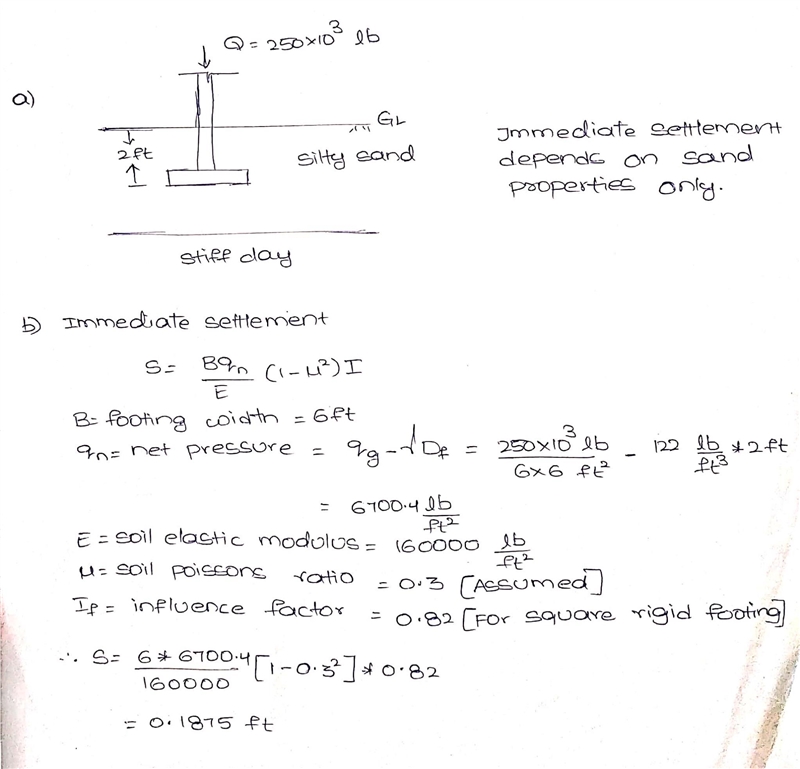 Q = 250×10³ lb
a)
GL
2 ft
silty sand
Immediate settlement
depends on sand
properties only.
stiff clay
b) Immediate settlement
S = Bqn/E (1-μ²) I
B = footing width = 6ft
qn = net pressure = qg - γDf = 250×10³ lb / 6×6 ft² - 122 lb/ft³ * 2ft
= 6700.4 lb/ft²
E = soil elastic modulus = 160000 lb/ft²
μ = soil poissons ratio = 0.3 [Assumed]
If = influence factor = 0.82 [For square rigid footing]
∴ S = 6 * 6700.4 / 160000 [1-0.3²] * 0.82
= 0.1875 ft